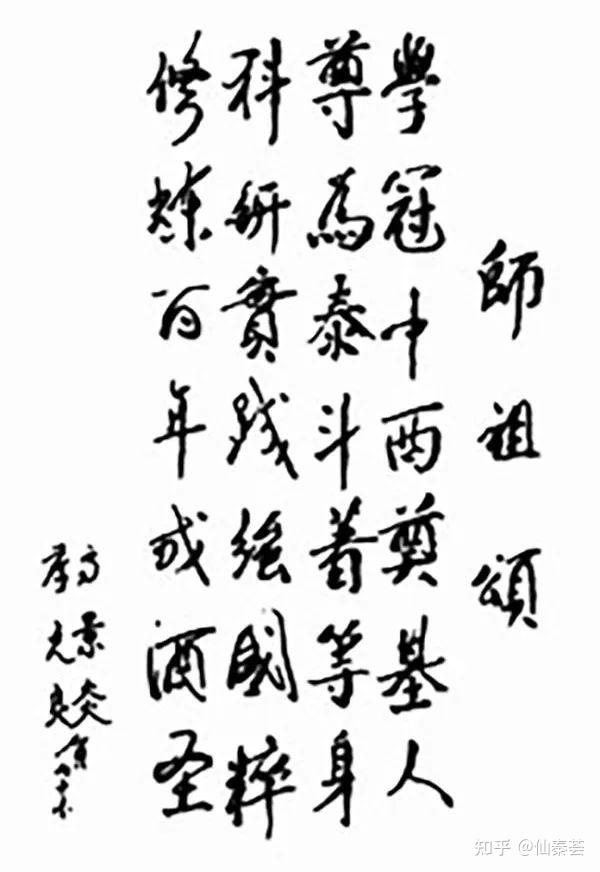 師祖頌
學冠中西奠基人
尊為泰斗著等身
科研實踐國粹
修煉百年成酒圣